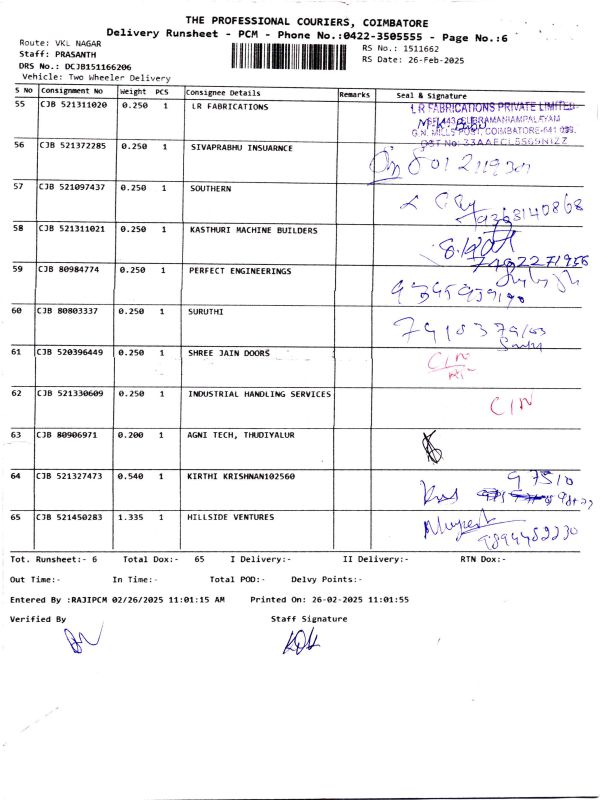 THE PROFESSIONAL COURIERS, COIMBATORE
Delivery Runsheet - PCM - Phone No.:0422-3505555 - Page No.:6
Route: VKL NAGAR
Staff: PRASANTH
DRS No.: DCJB151166206
Vehicle: Two Wheeler Delivery
RS No.: 1511662
RS Date: 26-Feb-2025
S No Consignment No Weight PCS Consignee Details Remarks Seal & Signature
55 CJB 521311020 0.250 1 LR FABRICATIONS
LR FABRICATIONS PRIVATE LIMITED
G.N. MILLS POST, COIMBATORE-641 029.
56 CJB 521372285 0.250 1 SIVAPRABHU INSUARNCE
57 CJB 521097437 0.250 1 SOUTHERN
9363140868
58 CJB 521311021 0.250 1 KASTHURI MACHINE BUILDERS
59 CJB 80984774 0.250 1 PERFECT ENGINEERINGS
60 CJB 80803337 0.250 1 SURUTHI
61 CJB 520396449 0.250 1 SHREE JAIN DOORS
C/N
62 CJB 521330609 0.250 1 INDUSTRIAL HANDLING SERVICES
C/N
63 CJB 80906971 0.200 1 AGNI TECH, THUDIYALUR
64 CJB 521327473 0.540 1 KIRTHI KRISHNAN102560
97510
65 CJB 521450283 1.335 1 HILLSIDE VENTURES
9894482230
Tot. Runsheet:- 6 Total Dox:- 65 I Delivery:- II Delivery:- RTN Dox:-
Out Time:- In Time:- Total POD:- Delvy Points:-
Entered By :RAJIPCM 02/26/2025 11:01:15 AM Printed On: 26-02-2025 11:01:55
Verified By Staff Signature